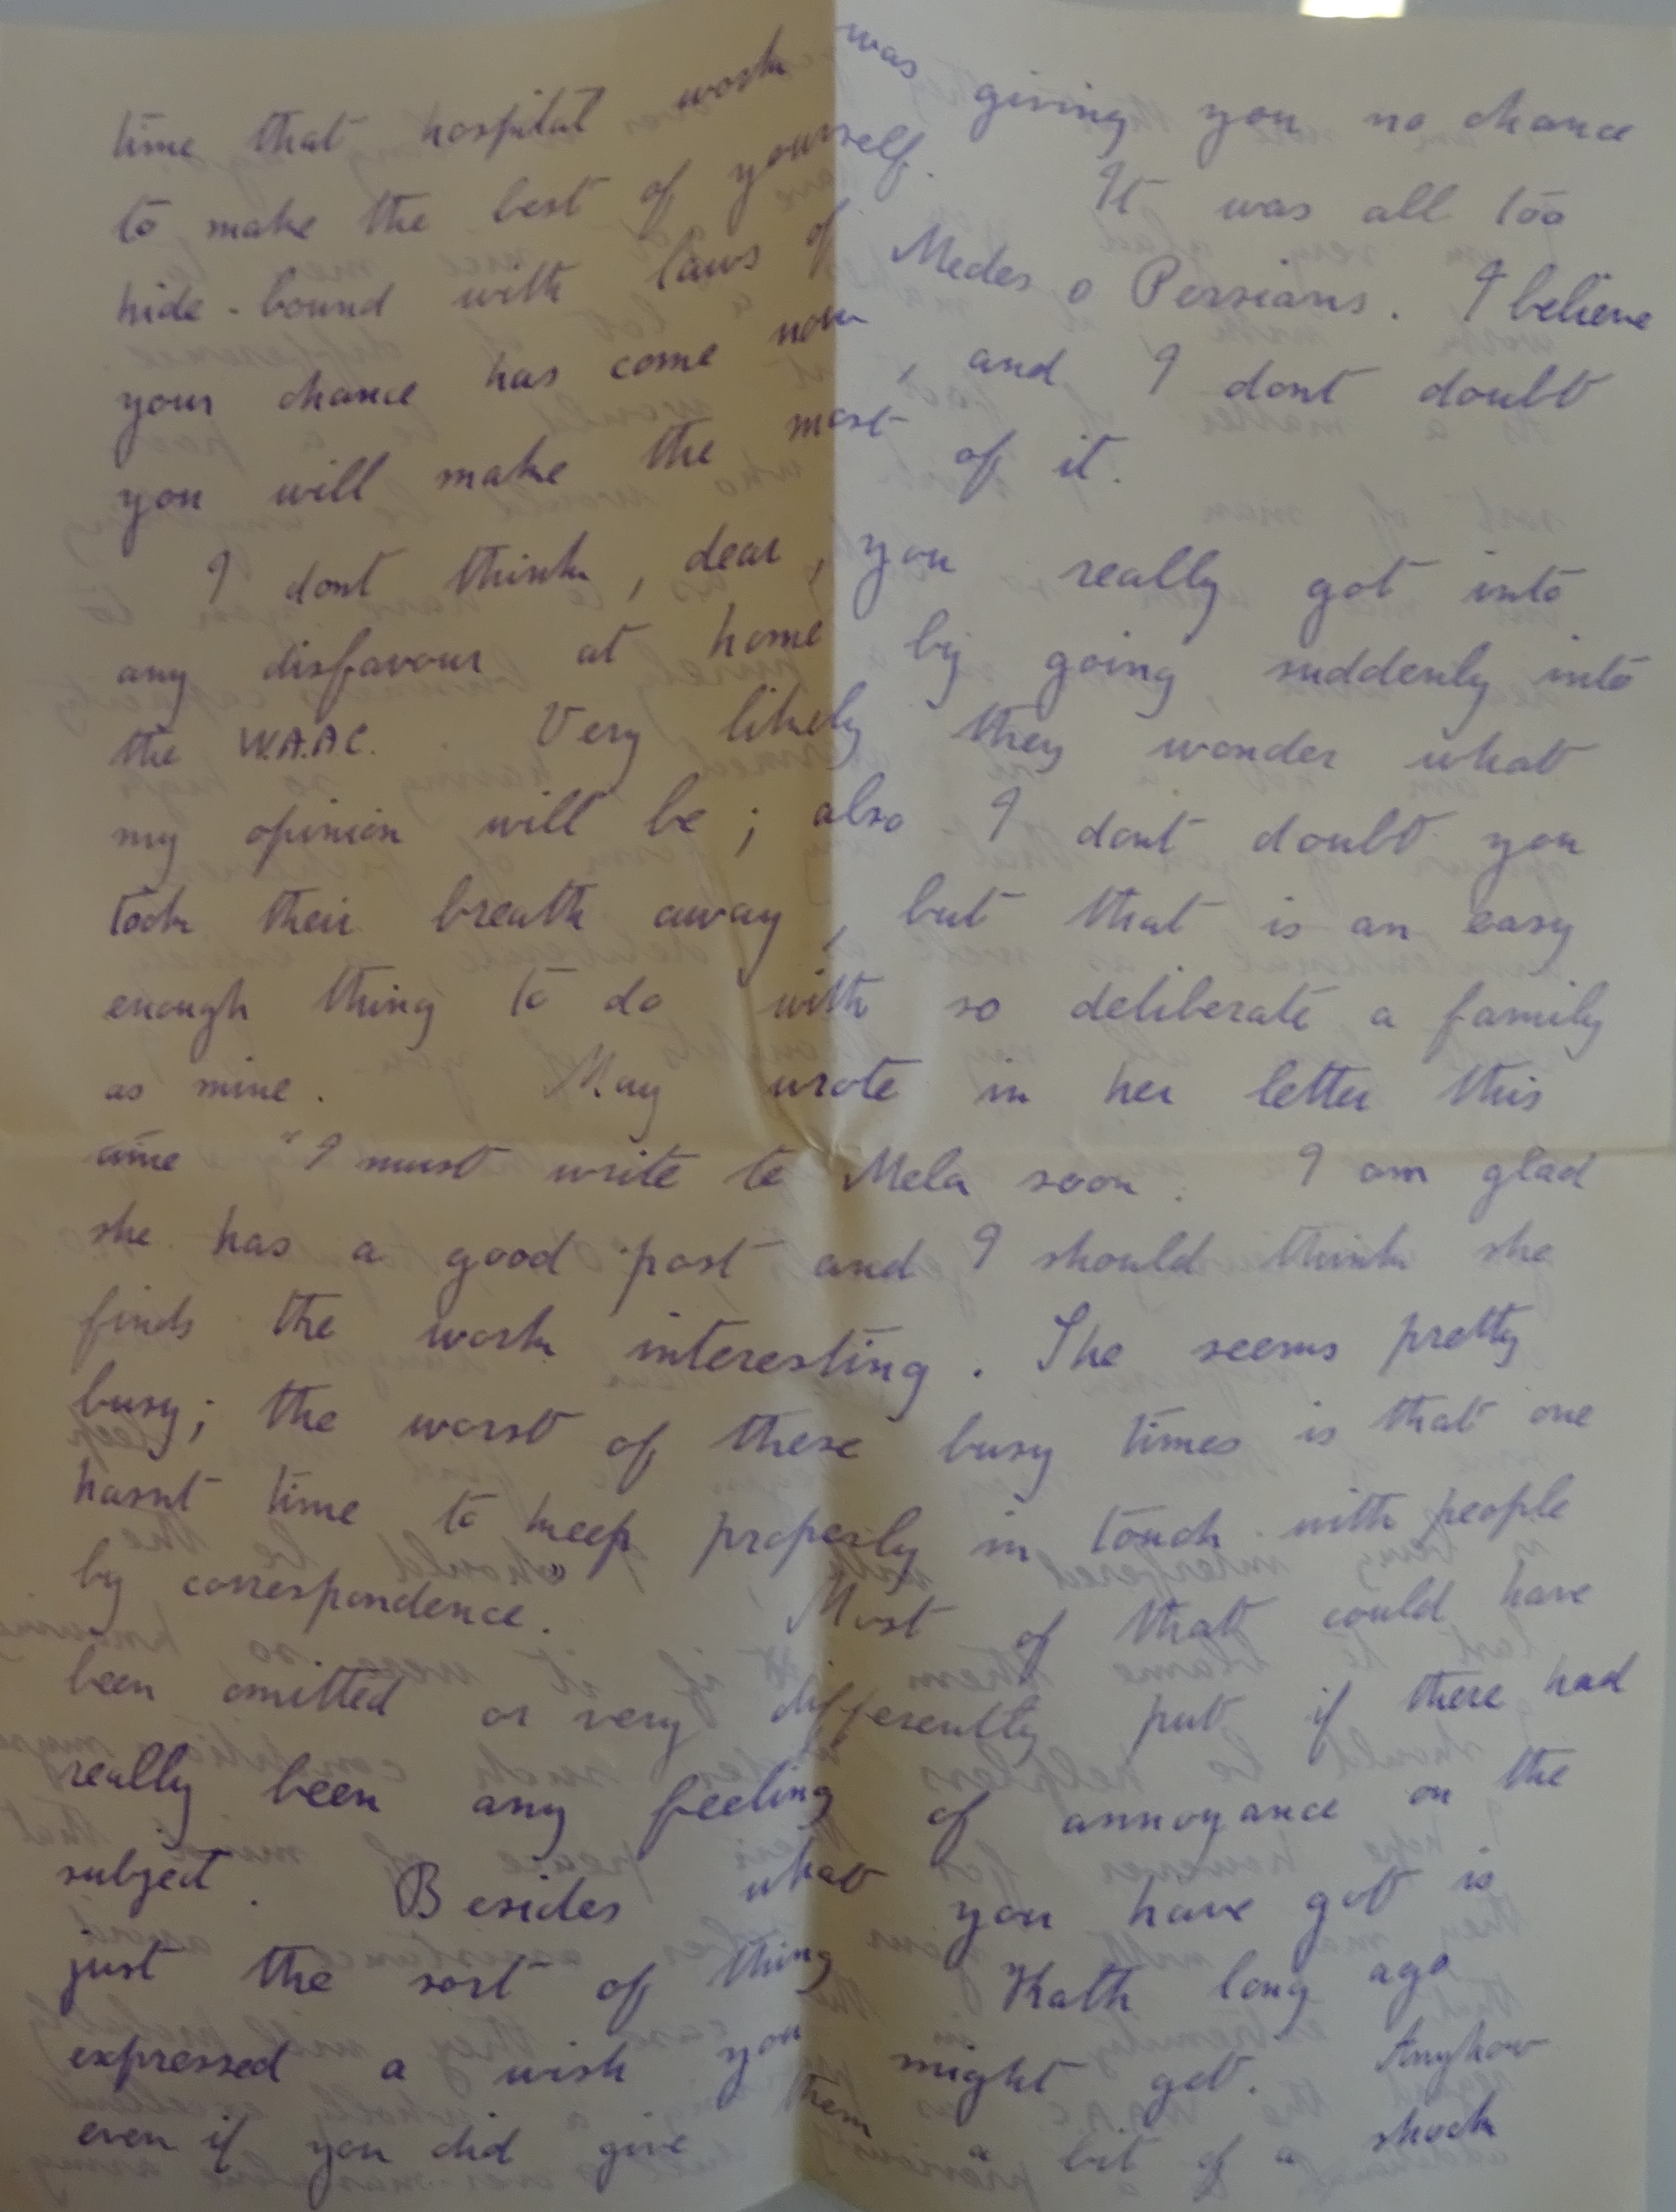 time that hospital work was giving you no chance
to make the best of yourself. It was all too
hide-bound with laws of Medes o Persians. I believe
your chance has come now, and I dont doubt
you will make the most of it.
I dont think, dear, you really got into
any disfavour at home by going suddenly into
the W.A.A.C. Very likely they wonder what
my opinion will be; also I dont doubt you
took their breath away, but that is an easy
enough thing to do with so deliberate a family
as mine. May wrote in her letter this
time "I must write to Mela soon. I am glad
she has a good post and I should think she
finds the work interesting. She seems pretty
busy; the worst of these busy times is that one
hasnt time to keep properly in touch with people
by correspondence." Most of that could have
been omitted or very differently put if there had
really been any feeling of annoyance on the
subject. Besides what you have got is
just the sort of thing Kath long ago
expressed a wish you might get. Anyhow
even if you did give them a bit of a shock